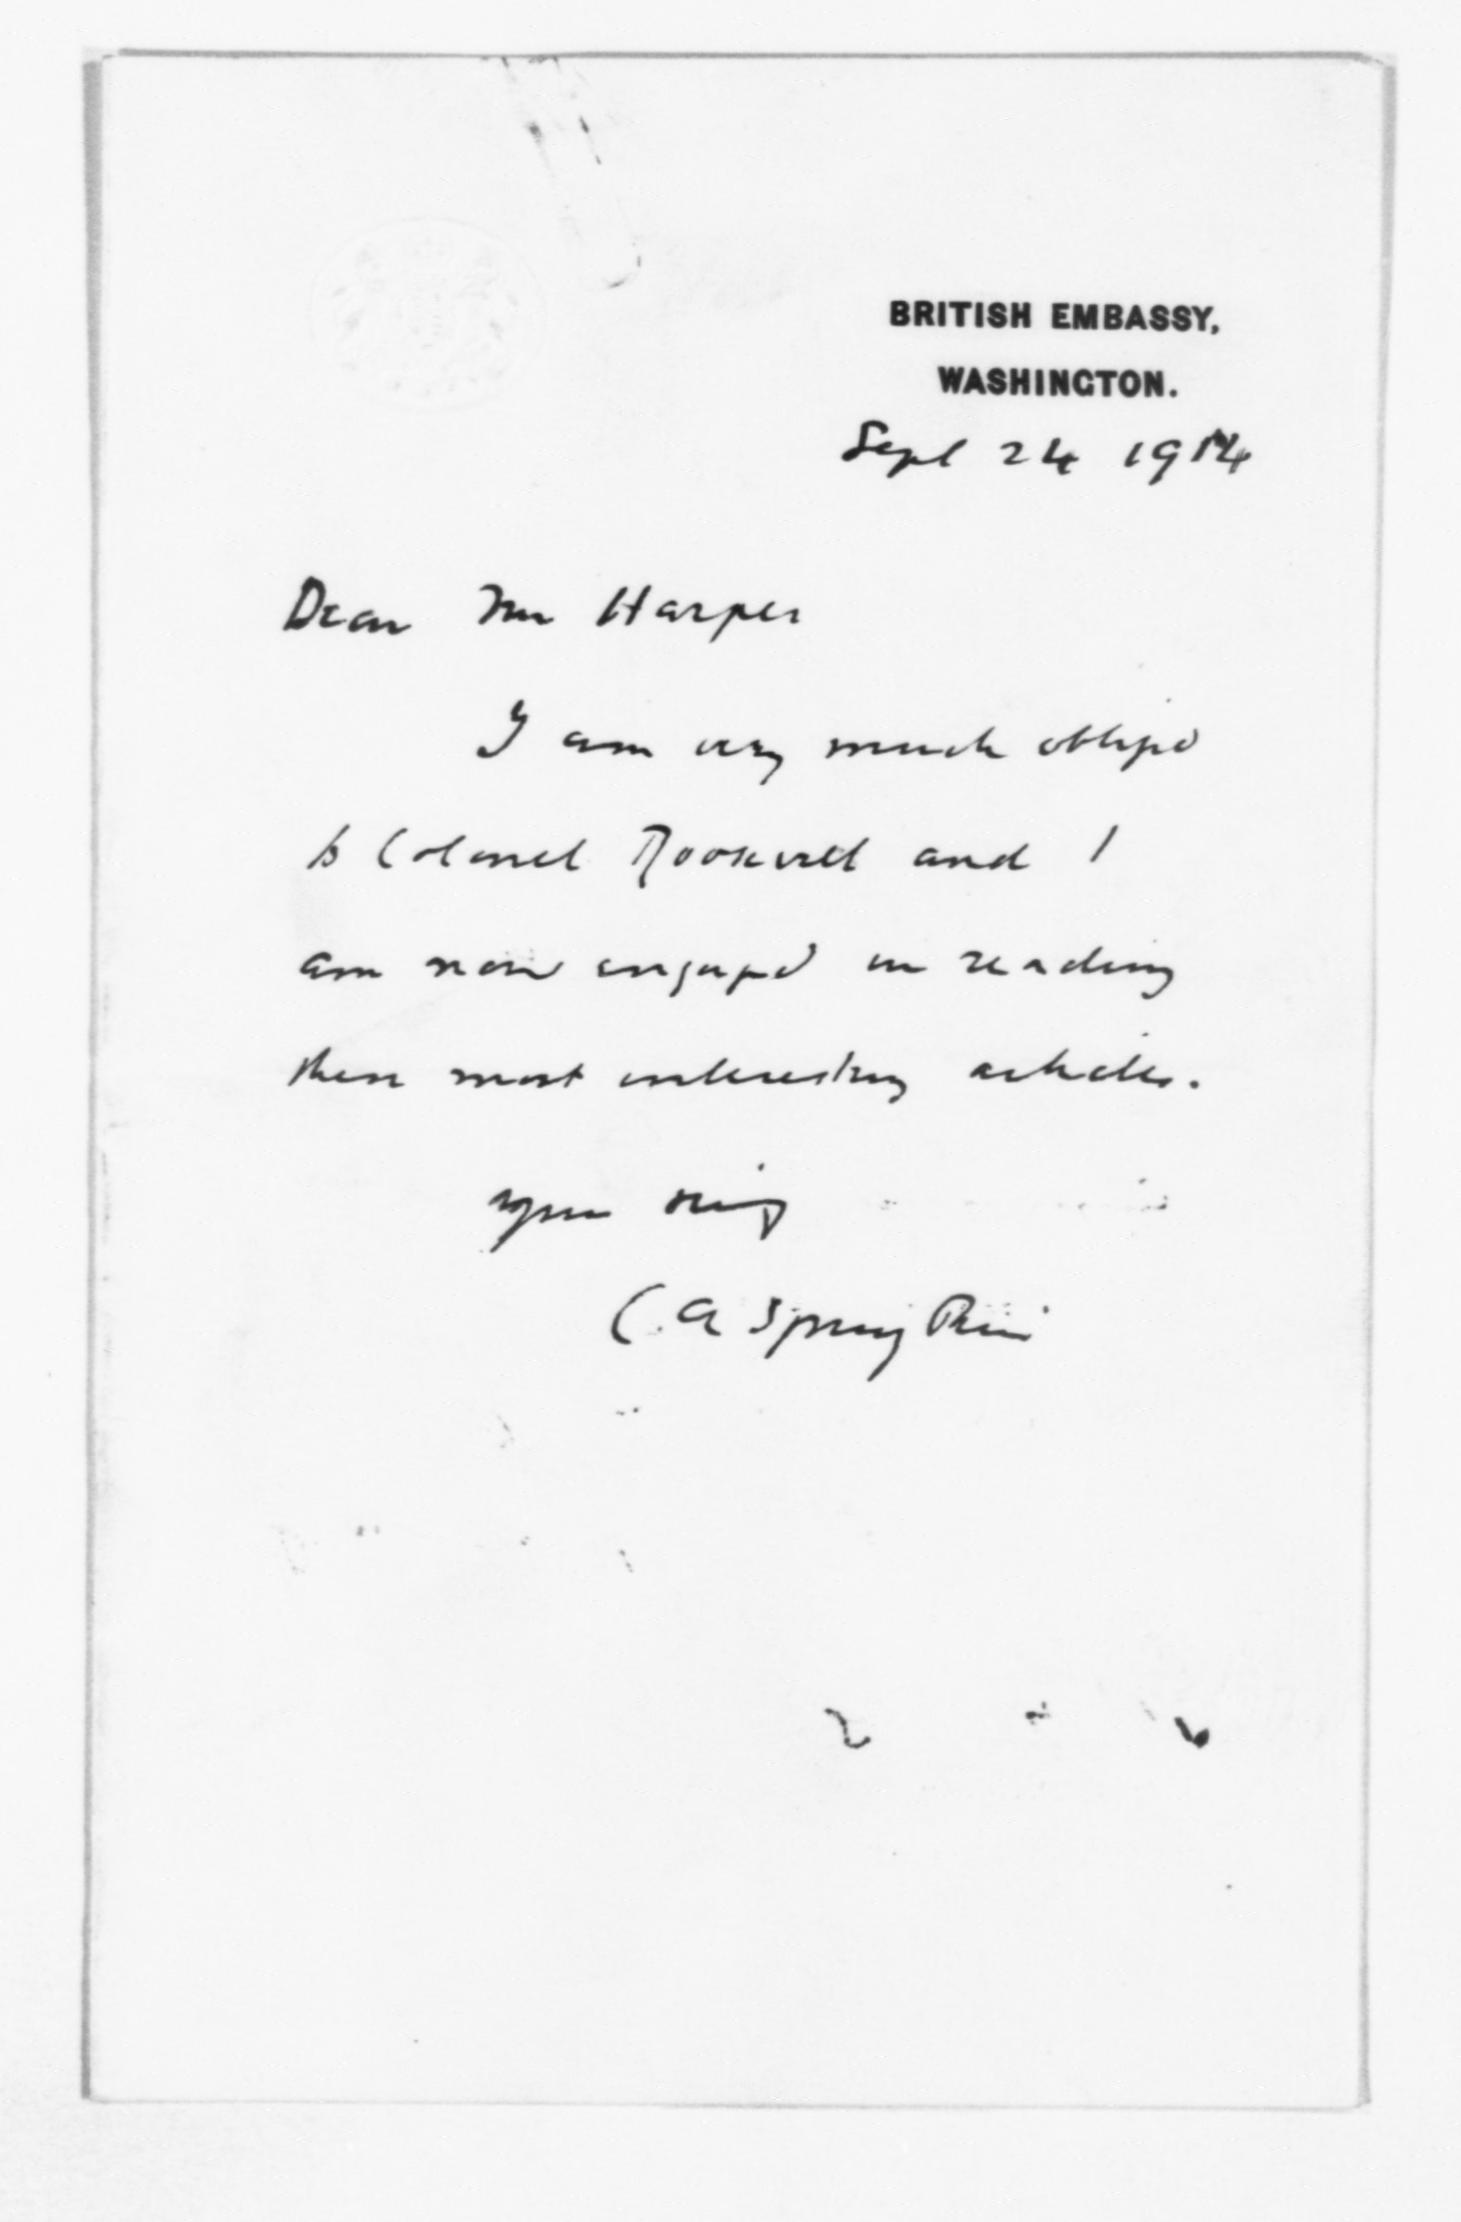 BRITISH EMBASSY,
WASHINGTON.
Sept 24 1914
Dear Mr Harper
I am very much obliged
to Colonel Roosevelt and I
am now engaged in reading
these most interesting articles.
Yours sincerely
C. A Spring Rice